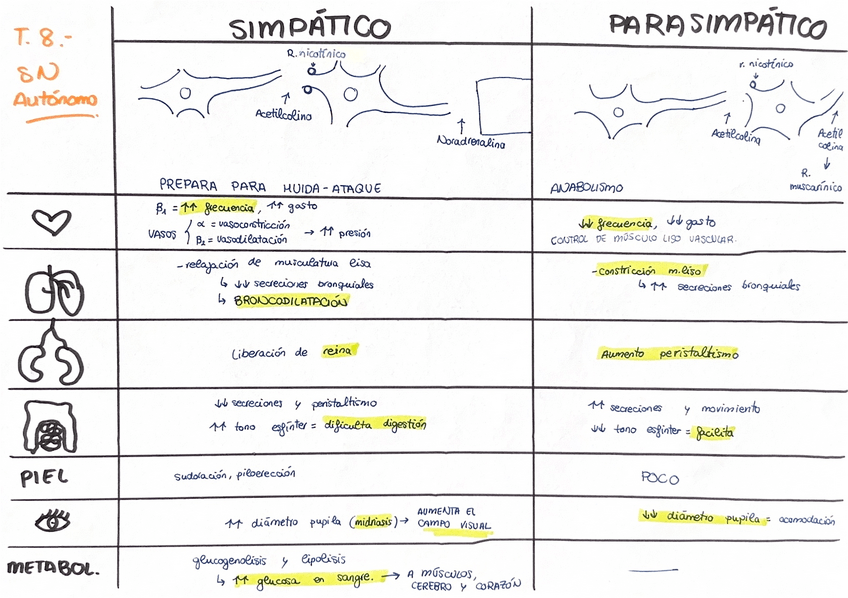 T. 8.-
SN
Autónomo
SIMPÁTICO
PARASIMPÁTICO
R. nicotínico
Acetilcolina
Noradrenalina
r. nicotínico
Acetilcolina
Acetil
colina
R.
muscarínico
PREPARA PARA HUIDA-ATAQUE
ANABOLISMO
β1 = ↑↑ frecuencia, ↑↑ gasto
VASOS
α = vasoconstricción
β2 = vasodilatación
→ ↑↑ presión
↓↓ frecuencia, ↓↓ gasto
CONTROL DE MÚSCULO LISO VASCULAR.
- relajación de musculatura lisa
↳ ↓↓ secreciones bronquiales
↳ BRONCODILATACIÓN
- constricción m. liso
↳ ↑↑ secreciones bronquiales
Liberación de reina
Aumento peristaltismo
↓↓ secreciones y peristaltismo
↑↑ tono esfínter = dificulta digestión
↑↑ secreciones y movimiento
↓↓ tono esfínter = facilita
PIEL
sudoración, piloerección
POCO
↑↑ diámetro pupila (midriasis) →
AUMENTA EL
CAMPO VISUAL
↓↓ diámetro pupila = acomodación
METABOL.
glucogenolisis y lipolisis
↳ ↑↑ glucosa en sangre. →
A MÚSCULOS,
CEREBRO Y CORAZÓN